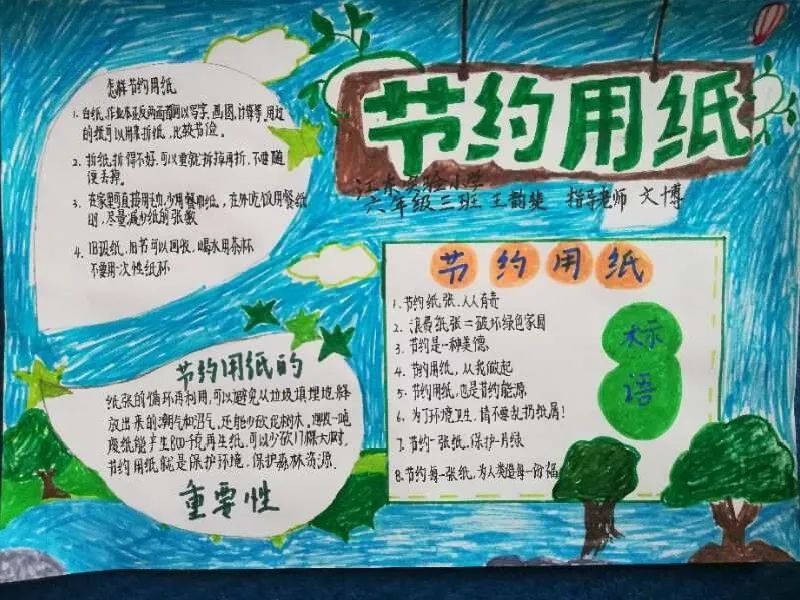 节约用纸
江东实验小学
六年级三班 王韵斐 指导老师 文博
怎样节约用纸
1. 白纸,作业本正反两面都可以写字,画图,计算等,用过
的纸可以用来折纸,比较节俭。
2. 折纸,折得不好,可以重就拆掉再折,不要随
便丢掉。
3. 在家里可直接用
少用餐巾纸。,在外吃饭用餐纸
时,尽量减少纸的张数
4. 旧报纸,旧书可以回收,喝水用茶杯
不要用一次性纸杯
节约用纸的
纸张的循环再利用,可以避免从垃圾填埋地释
放出来的潮气和沼气,还能少砍伐树木,回收一吨
废纸能产生800千克再生纸,可以少砍17棵大树.
节约用纸就是保护环境,保护森林资源.
重要性
节约用纸
标语
1. 节约纸张,人人有责
2. 浪费纸张=破坏绿色家园
3. 节约是一种美德
4. 节约用纸,从我做起
5. 节约用纸,也是节约能源
6. 为了环境卫生,请不要乱扔纸屑!
7. 节约一张纸,保护一片绿
8. 节约每一张纸,为人类造每一份福